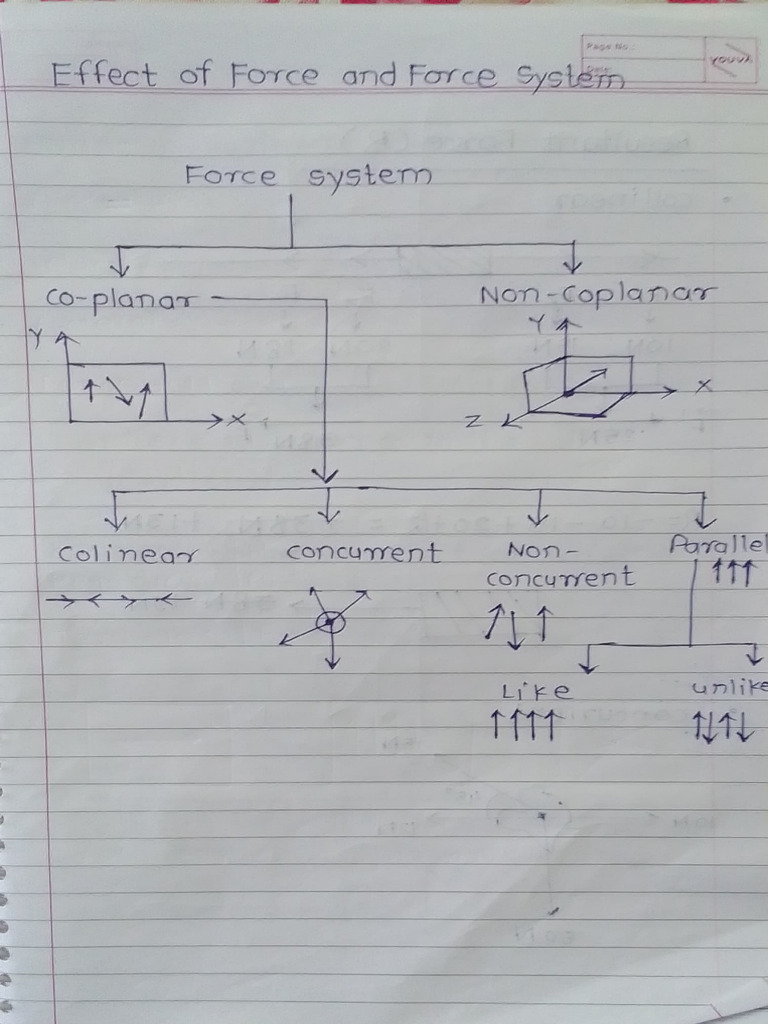 Page No.:
Date:
YOUVA
Effect of Force and Force System
Force system
Co-planar
Non-coplanar
Y
X
Y
X
Z
Colinear
concurrent
Non-
concurrent
Parallel
Like
unlike